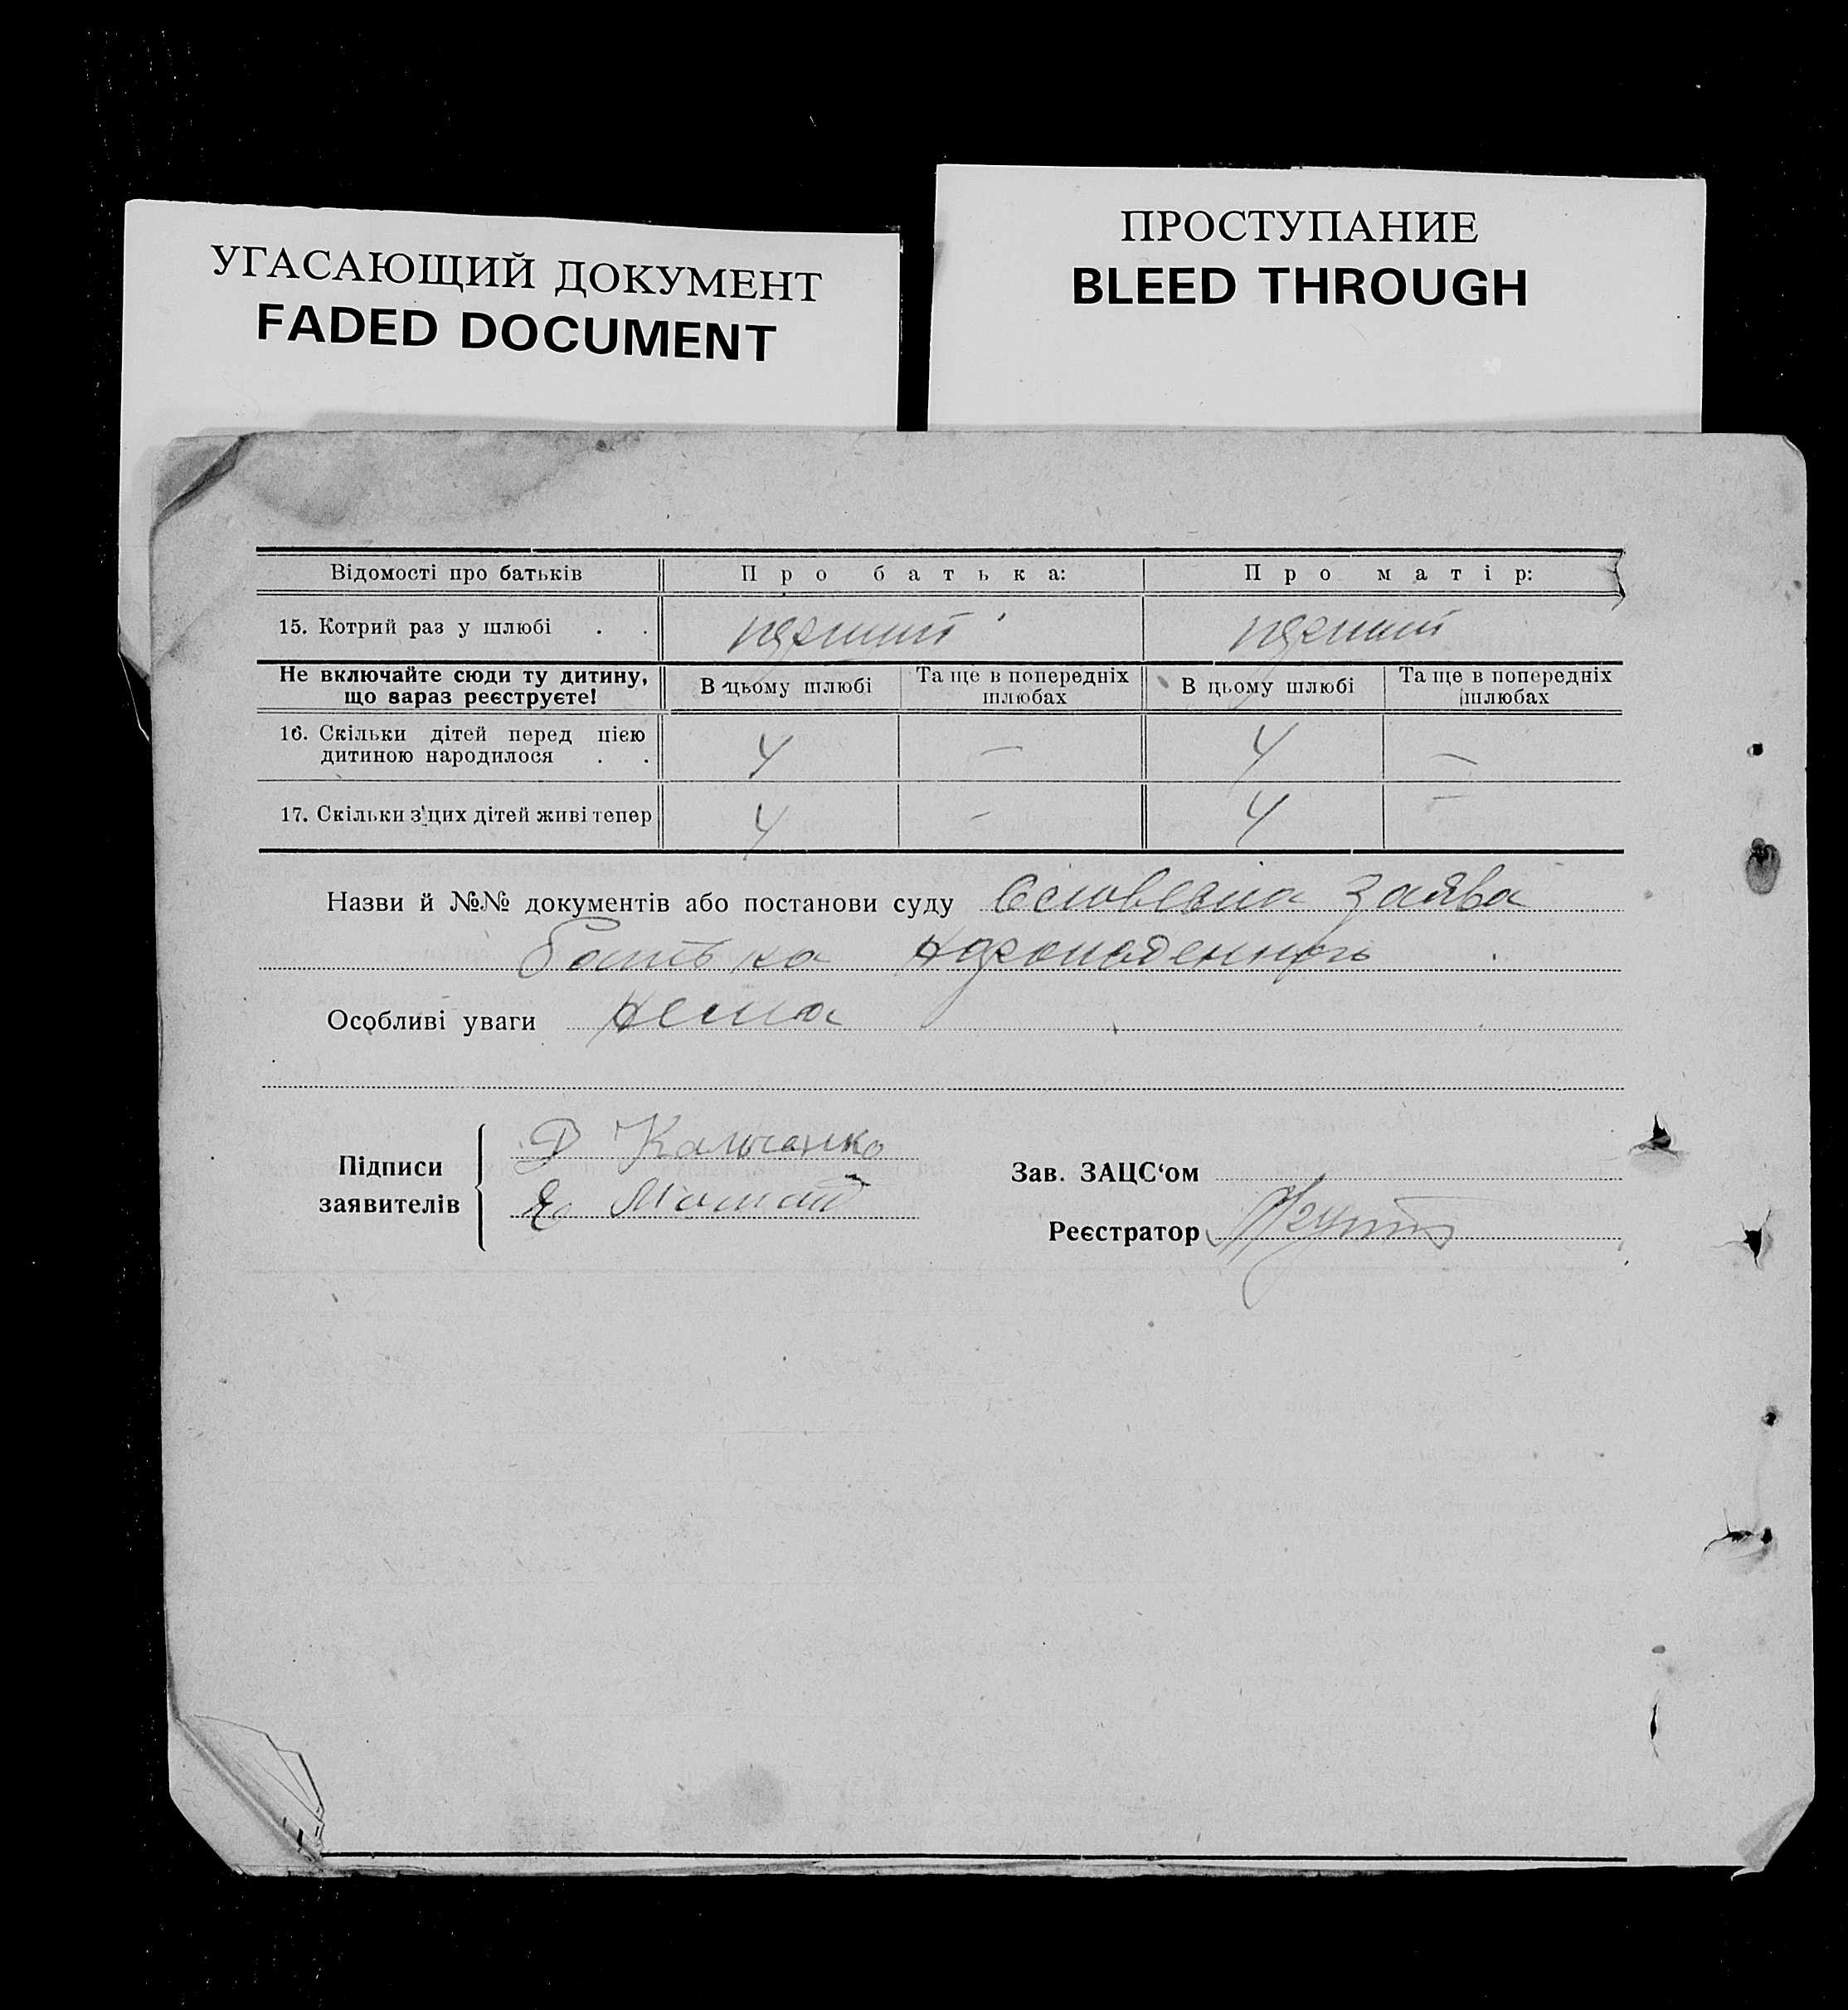 УГАСАЮЩИЙ ДОКУМЕНТ
FADED DOCUMENT
ПРОСТУПАНИЕ
BLEED THROUGH
Відомості про батьків Про батька: Про матір:
15. Котрий раз у шлюбі . . перший перший
Не включайте сюди ту дитину, що зараз реєструєте! В цьому шлюбі Та ще в попередніх шлюбах В цьому шлюбі Та ще в попередніх шлюбах
16. Скільки дітей перед цією дитиною народилося . . 4 — 4 —
17. Скільки з'цих дітей живі тепер 4 — 4 —
Назви й №№ документів або постанови суду Словесна заява
батька
Особливі уваги нема
Підписи заявителів
Кальченко
Зав. ЗАЦС‘ом
Реєстратор